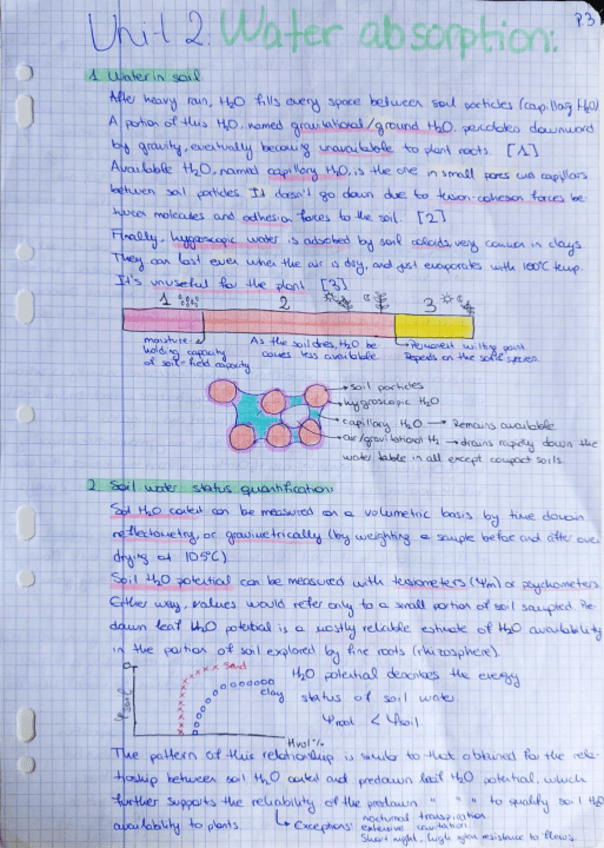 P3
Unit 2. Water absorption:
1 Water in soil
After heavy rain, H2O fills every space between soil particles (capillary H2O)
A portion of this H2O, named gravitational/ground H2O, percolates downward
by gravity, eventually becoming unavailable to plant roots. [1]
Available H2O, named capillary H2O, is the one in small pores capillars
between soil particles. It doesn't go down due to tension-cohesion forces be-
tween molecules and adhesion forces to the soil. [2]
Finally, hygroscopic water is adsorbed by soil coloids, very common in clays
They can last even when the air is dry, and just evaporates with 100°C temp.
It's unuseful for the plant [3]
1 2 3
moisture-
holding capacity
of soil = field capacity
As the soil dries, H2O be
comes less available
Permanent wilting point.
Depends on the soil & species
soil particles
hygroscopic H2O
capillary H2O → Remains available
air/gravitational H2 → drains rapidly down the
water table in all except compact soils.
2. Soil water status quantification:
Soil H2O content can be measured on a volumetric basis by time domain
reflectometry, or gravimetrically (by weighting a sample before and after oven
drying at 105°C)
Soil H2O potential can be measured with tensiometers (Ψm) or psychometers
Either way, values would refer only to a small portion of soil sampled. Pre-
dawn leaf H2O potential is a mostly reliable estimate of H2O availability
in the portion of soil explored by fine roots (rhizosphere).
0
Ψsoil
sand
clay
Hvol%
H2O potential describes the energy
status of soil water.
Ψroot < Ψsoil
The pattern of this relationship is similar to that obtained for the rela-
tioship between soil H2O content and predawn leaf H2O potential, which
further supports the reliability of the predawn " " " to qualify soil H2O
availability to plants.
Exceptions:
nocturnal transpiration.
extensive cavitation.
Short night, high resistance to flows.